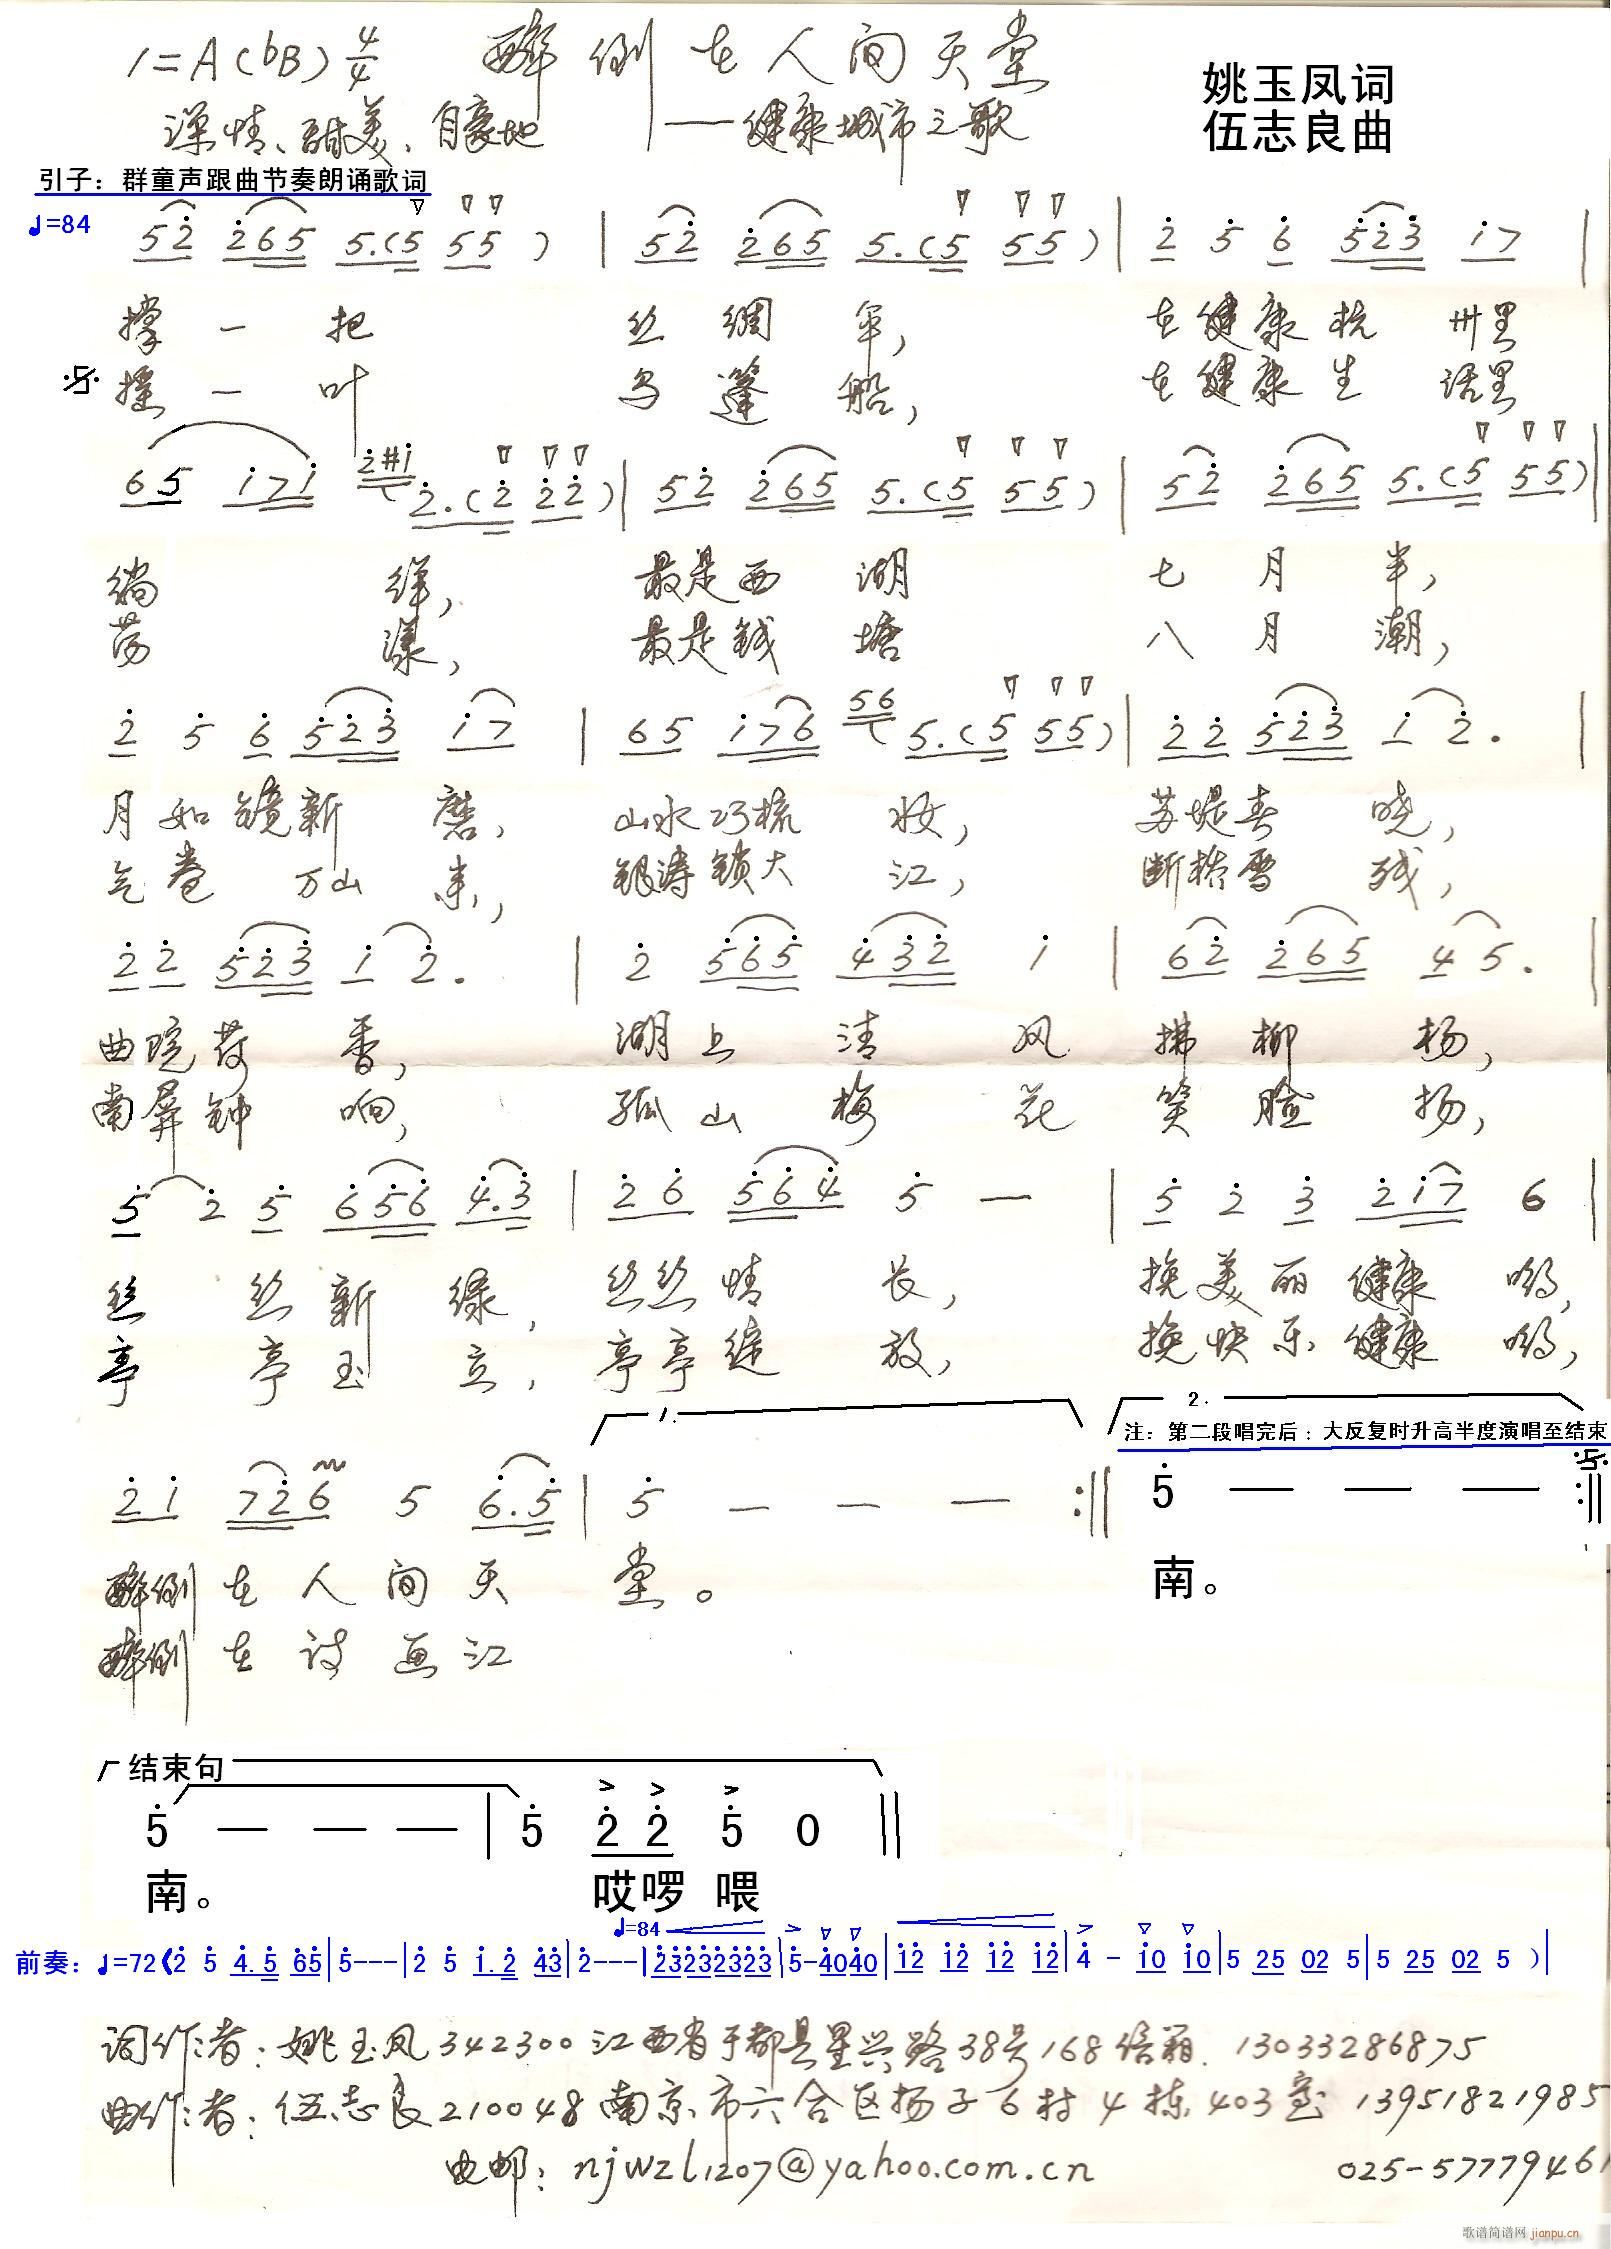 1=A(bB) 4/4 醉倒在人间天堂
姚玉凤词
深情、甜美、自豪地 ——健康城市之歌
伍志良曲
引子：群童声跟曲节奏朗诵歌词
♩=84 5 2̇ 2̇ 6 5 5.(5 5 5) | 5 2̇ 2̇ 6 5 5.(5 5 5) | 2̇ 5̇ 6̇ 5̇ 2̇ 3̇ 1̇ 7 |
撑一把 丝绸伞， 在健康杭州里
摇一叶 乌篷船， 在健康生活里
6 5 1̇ 7 1̇ 2̇ #1̇ 2̇.(2̇ 2̇ 2̇) | 5 2̇ 2̇ 6 5 5.(5 5 5) | 5 2̇ 2̇ 6 5 5.(5 5 5) |
徜徉， 最是西湖 七月半，
荡漾， 最是钱塘 八月潮，
2̇ 5̇ 6̇ 5̇ 2̇ 3̇ 1̇ 7 | 6 5 1̇ 7 6 5 6 5.(5 5 5) | 2̇ 2̇ 5̇ 2̇ 3̇ 1̇ 2̇. |
月如镜新磨， 山水巧梳妆， 苏堤春晓，
气卷万山来， 银涛锁大江， 断桥雪残，
2̇ 2̇ 5̇ 2̇ 3̇ 1̇ 2̇. | 2̇ 5̇ 6̇ 5̇ 4̇ 3̇ 2̇ 1̇ | 6 2̇ 2̇ 6 5 4 5. |
曲院荷香， 湖上清风 拂柳杨，
南屏钟响， 孤山梅花 笑脸扬，
5̇ 2̇ 5̇ 6̇ 5̇ 6̇ 4̇.3̇ | 2̇ 6̇ 5̇ 6̇ 4̇ 5̇ — | 5̇ 2̇ 3̇ 2̇ 1̇ 7 6 |
丝丝新绿， 丝丝情长， 挽美丽健康哟，
亭亭玉立， 亭亭绽放， 挽快乐健康哟，
1. 2.
注：第二段唱完后：大反复时升高半度演唱至结束
2̇ 1̇ 7 2̇ 6 5 6.5 | 5̇ — — — :‖ 5̇ — — — :‖
醉倒在人间天 堂。 南。
醉倒在诗画江
结束句
5̇ — — — | 5̇ 2̇ 2̇ 5̇ 0 ‖
南。 哎啰喂
♩=84
前奏：♩=72《2̇ 5 4.5 6 5 | 5--- | 2̇ 5 1̇.2̇ 4̇3̇ | 2̇--- | 2̇3̇2̇3̇2̇3̇2̇3̇ | 5̇-4̇04̇0 | 1̇2̇ 1̇2̇ 1̇2̇ 1̇2̇ | 4̇ - 1̇0 1̇0 | 5 25 02 5 | 5 25 02 5 ) |
词作者：姚玉凤 342300 江西省于都县星兴路38号168信箱. 13033286875
曲作者：伍志良 210048 南京市六合区扬子6村4栋403室 13951821985
电邮：njwzl1207@yahoo.com.cn 025-57779461
歌谱简谱网 jianpu.cn